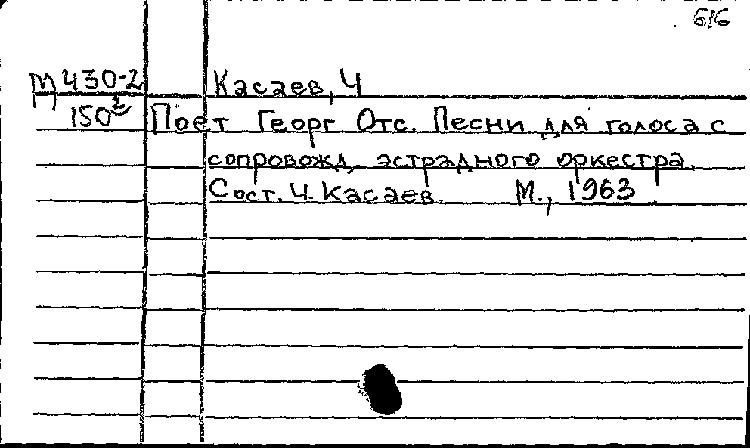 б/б
М 430-2 Касаев, Ч
150² Поёт Георг Отс. Песни для голоса с
сопровожд. эстрадного оркестра.
Сост. Ч. Касаев. М., 1963